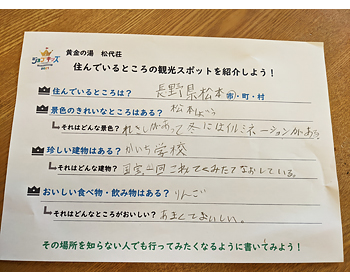 黄金の湯 松代荘
住んでいるところの観光スポットを紹介しよう！
住んでいるところは？ 長野県松本 市・町・村
景色のきれいなところはある？ 松本じょう
それはどんな景色？ れきしがあって冬にはイルミネーションがある
珍しい建物はある？ かいち学校
それはどんな建物？ 一回これてくみたてなおしている。
おいしい食べ物・飲み物はある？ りんご
それはどんなところがおいしい？ あまくておいしい。
その場所を知らない人でも行ってみたくなるように書いてみよう！